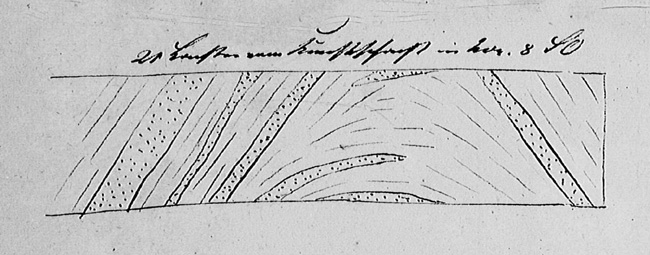 21 Lachter vom Kunstschacht in hor. 8 SO